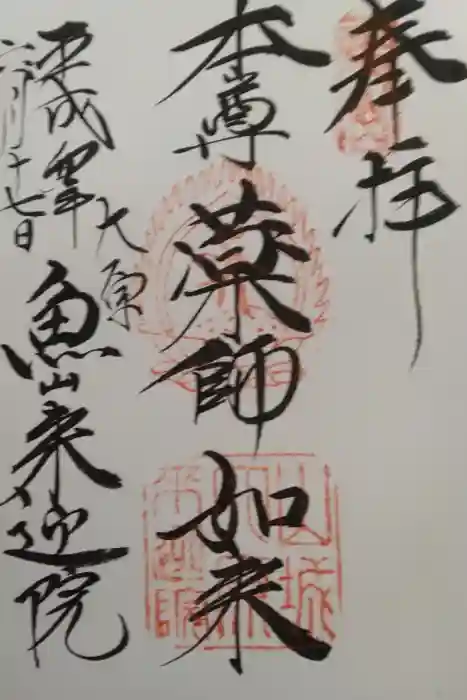 奉拝
本尊
薬師如来
大原
魚山来迎院
平成
六月十七日